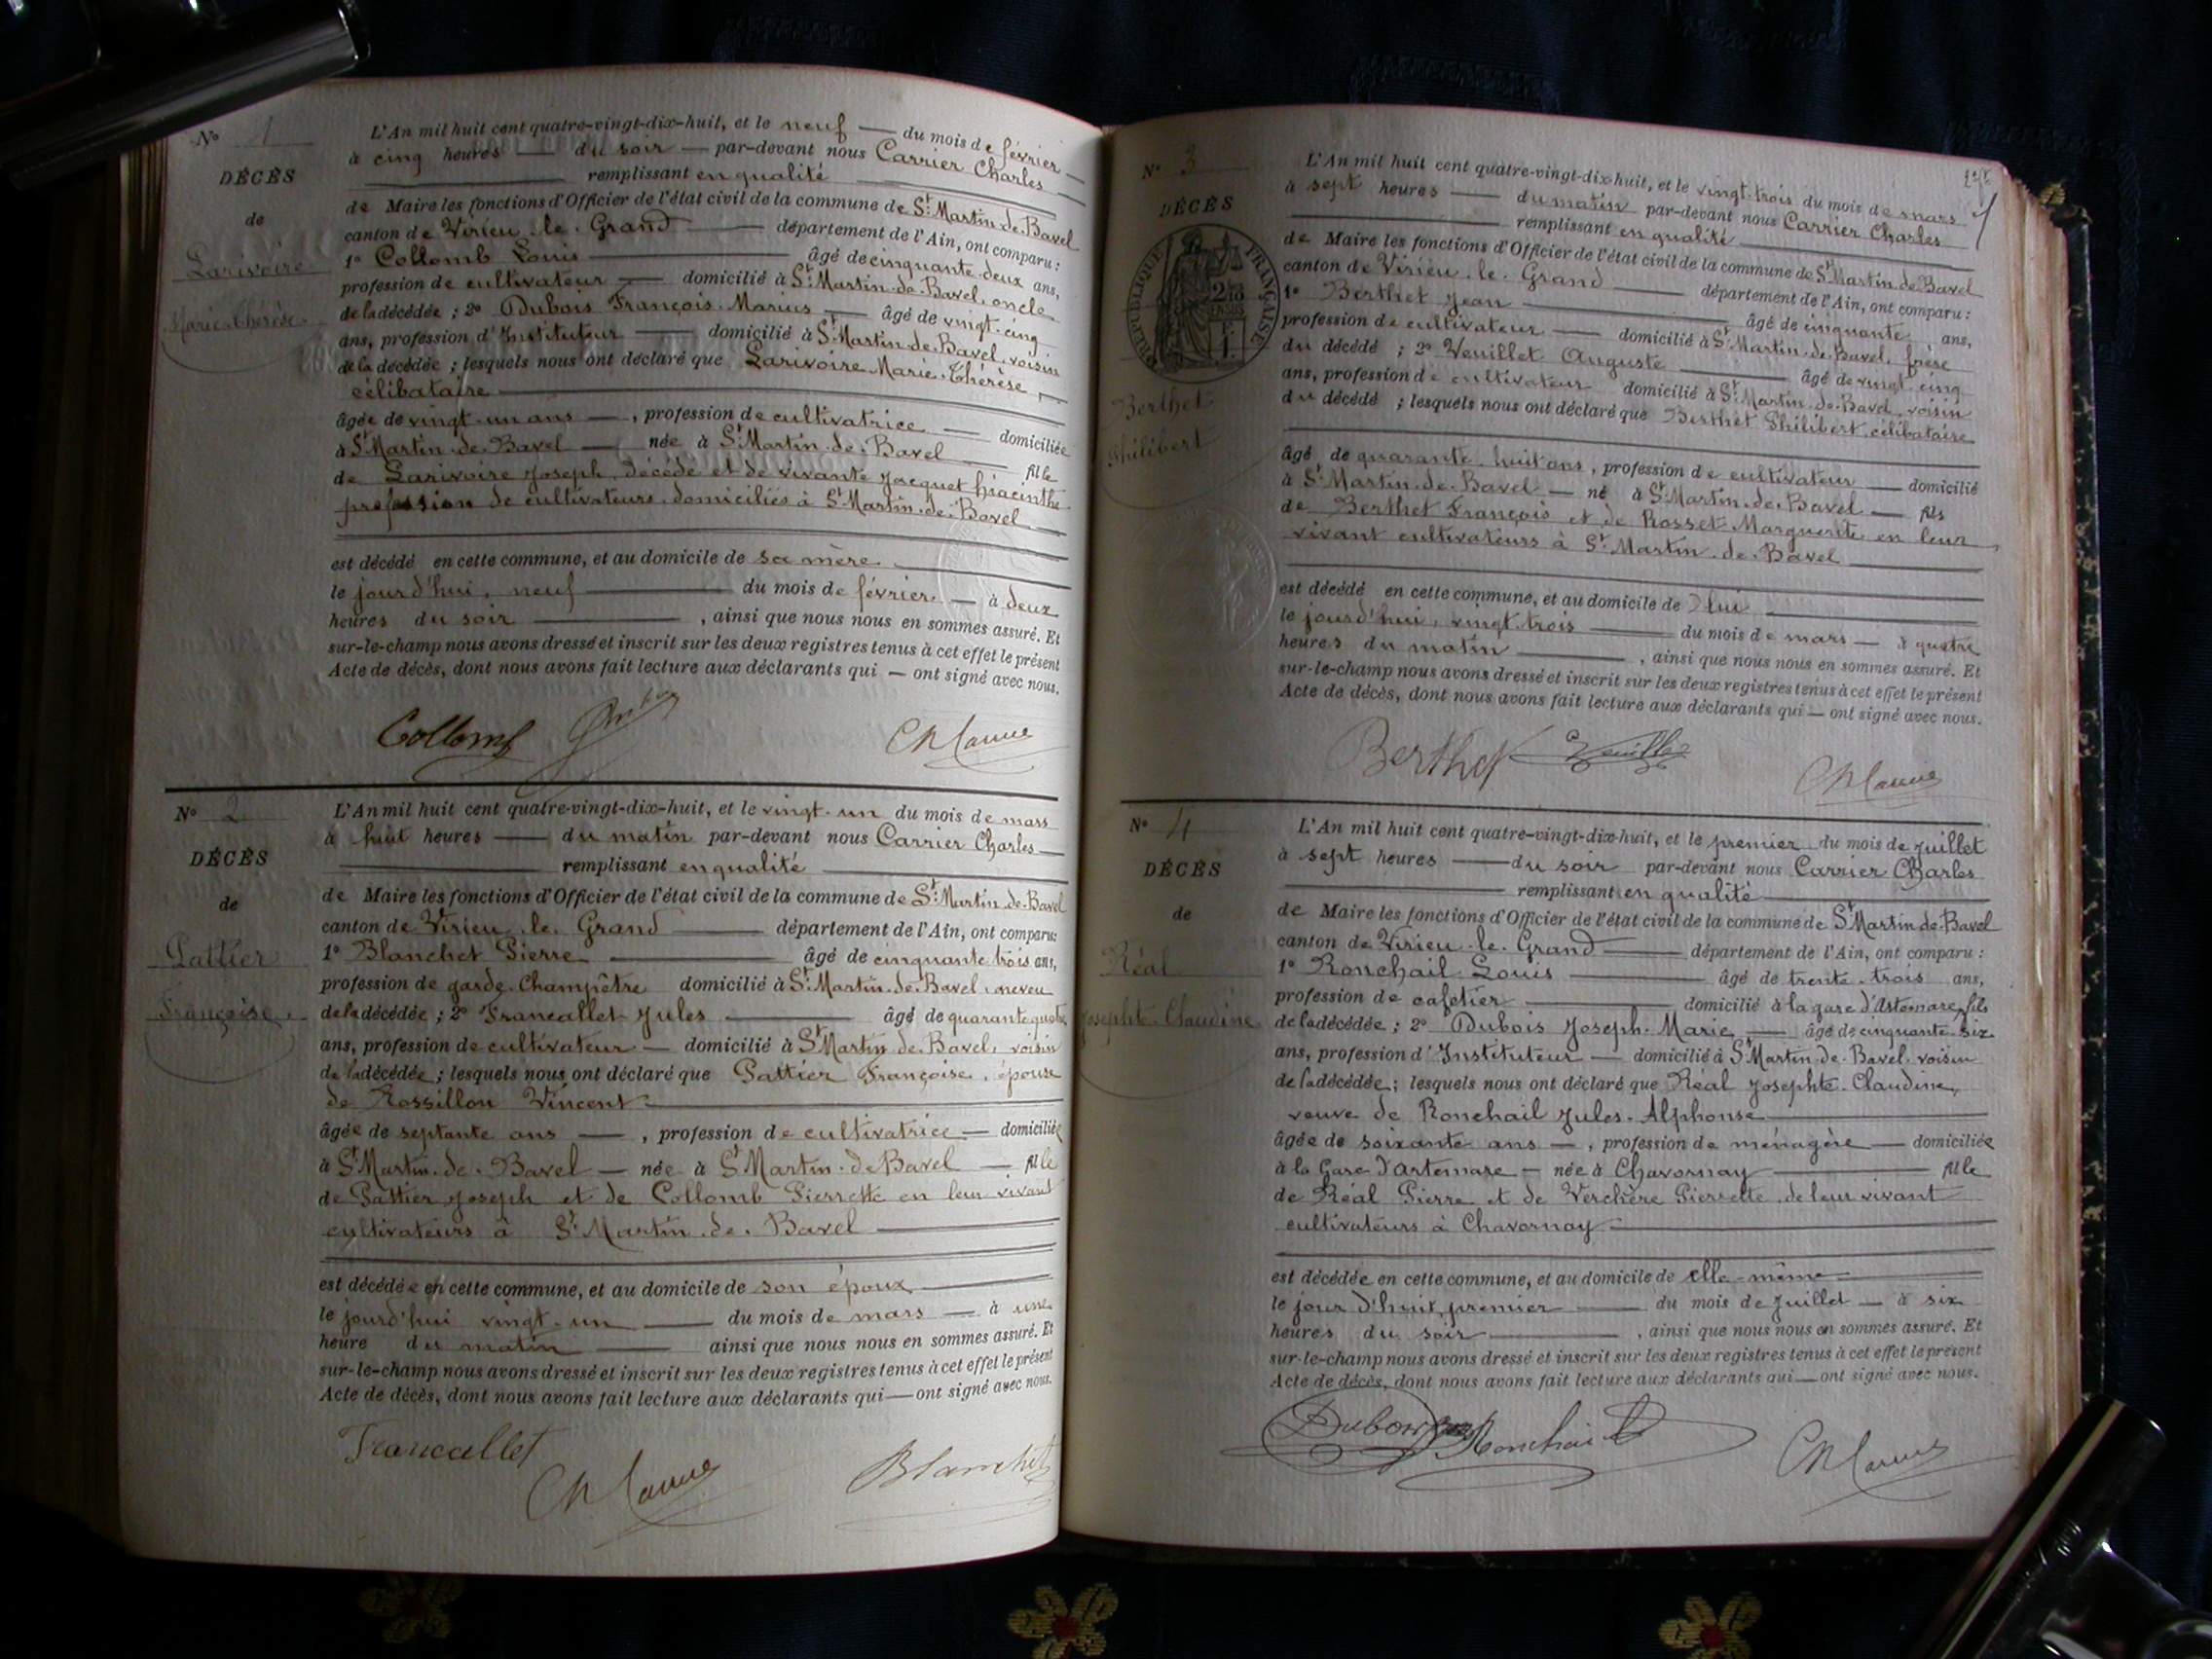 N° 1
DÉCÈS
de
Larivoire
Marie-Thérèse
L'An mil huit cent quatre-vingt-dix-huit, et le neuf du mois de février
à cinq heures du soir par-devant nous Carrier Charles
remplissant en qualité
de Maire les fonctions d'Officier de l'état civil de la commune de St Martin-de-Bavel
canton de Virieu-le-Grand département de l'Ain, ont comparu :
1° Collomb Louis âgé de cinquante-deux ans,
profession de cultivateur domicilié à St Martin-de-Bavel, oncle
de la décédée ; 2° Dubois François-Marius âgé de vingt-cinq
ans, profession d'Instituteur domicilié à St Martin-de-Bavel, voisin
de la décédée ; lesquels nous ont déclaré que Larivoire Marie-Thérèse,
célibataire
âgée de vingt-un ans, profession de cultivatrice domiciliée
à St Martin-de-Bavel née à St Martin-de-Bavel fille
de Larivoire Joseph, décédé et de vivante Jacquet Hiacinthe
profession de cultivateurs domiciliés à St Martin-de-Bavel
est décédé en cette commune, et au domicile de sa mère
le jourd'hui, neuf du mois de février à deux
heures du soir, ainsi que nous nous en sommes assuré. Et
sur-le-champ nous avons dressé et inscrit sur les deux registres tenus à cet effet le présent
Acte de décès, dont nous avons fait lecture aux déclarants qui — ont signé avec nous.
Collomb
N° 2
DÉCÈS
de
Pattier
Françoise
L'An mil huit cent quatre-vingt-dix-huit, et le vingt-un du mois de mars
à huit heures du matin par-devant nous Carrier Charles
remplissant en qualité
de Maire les fonctions d'Officier de l'état civil de la commune de St Martin-de-Bavel
canton de Virieu-le-Grand département de l'Ain, ont comparu :
1° Blanchet Pierre âgé de cinquante trois ans,
profession de garde-Champêtre domicilié à St Martin-de-Bavel, neveu
de la décédée ; 2° Francallet Jules âgé de quarante quatre
ans, profession de cultivateur domicilié à St Martin-de-Bavel, voisin
de la décédée ; lesquels nous ont déclaré que Pattier Françoise, épouse
de Rossillon Vincent
âgée de septante ans, profession de cultivatrice domiciliée
à St Martin-de-Bavel née à St Martin-de-Bavel fille
de Pattier Joseph et de Collomb Pierrette en leur vivant
cultivateurs à St Martin-de-Bavel
est décédée en cette commune, et au domicile de son époux
le jourd'hui vingt-un du mois de mars à une
heure du matin ainsi que nous nous en sommes assuré. Et
sur-le-champ nous avons dressé et inscrit sur les deux registres tenus à cet effet le présent
Acte de décès, dont nous avons fait lecture aux déclarants qui — ont signé avec nous.
Francallet
Blanchet
N° 3
DÉCÈS
RÉPUBLIQUE FRANÇAISE
Berthet
Philibert
L'An mil huit cent quatre-vingt-dix-huit, et le vingt-trois du mois de mars
à sept heures du matin par-devant nous Carrier Charles
remplissant en qualité
de Maire les fonctions d'Officier de l'état civil de la commune de St Martin-de-Bavel
canton de Virieu-le-Grand département de l'Ain, ont comparu :
1° Berthet Jean âgé de cinquante ans,
profession de cultivateur domicilié à St Martin-de-Bavel, frère
du décédé ; 2° Veuillet Auguste âgé de vingt-cinq
ans, profession de cultivateur domicilié à St Martin-de-Bavel, voisin
du décédé ; lesquels nous ont déclaré que Berthet Philibert, célibataire
âgé de quarante-huit ans, profession de cultivateur domicilié
à St Martin-de-Bavel né à St Martin-de-Bavel fils
de Berthet François et de Rosset Marguerite en leur
vivant cultivateurs à St Martin-de-Bavel
est décédé en cette commune, et au domicile de lui
le jourd'hui, vingt-trois du mois de mars à quatre
heures du matin, ainsi que nous nous en sommes assuré. Et
sur-le-champ nous avons dressé et inscrit sur les deux registres tenus à cet effet le présent
Acte de décès, dont nous avons fait lecture aux déclarants qui — ont signé avec nous.
Berthet Veuillet
N° 4
DÉCÈS
de
Réal
Josephte-Claudine
L'An mil huit cent quatre-vingt-dix-huit, et le premier du mois de Juillet
à sept heures du soir par-devant nous Carrier Charles
remplissant en qualité
de Maire les fonctions d'Officier de l'état civil de la commune de St Martin-de-Bavel
canton de Virieu-le-Grand département de l'Ain, ont comparu :
1° Ronchail Louis âgé de trente-trois ans,
profession de cafetier domicilié à la gare d'Artemare, fils
de la décédée ; 2° Dubois Joseph-Marie âgé de cinquante-six
ans, profession d'Instituteur domicilié à St Martin-de-Bavel, voisin
de la décédée ; lesquels nous ont déclaré que Réal Josephte-Claudine,
veuve de Ronchail Jules-Alphonse
âgée de soixante ans, profession de ménagère domiciliée
à la Gare d'Artemare née à Chavornay fille
de Réal Pierre et de Verchère Pierrette, de leur vivant
cultivateurs à Chavornay
est décédée en cette commune, et au domicile de elle-même
le jour d'huit, premier du mois de Juillet à six
heures du soir, ainsi que nous nous en sommes assuré. Et
sur-le-champ nous avons dressé et inscrit sur les deux registres tenus à cet effet le présent
Acte de décès, dont nous avons fait lecture aux déclarants qui — ont signé avec nous.
Dubois Ronchail